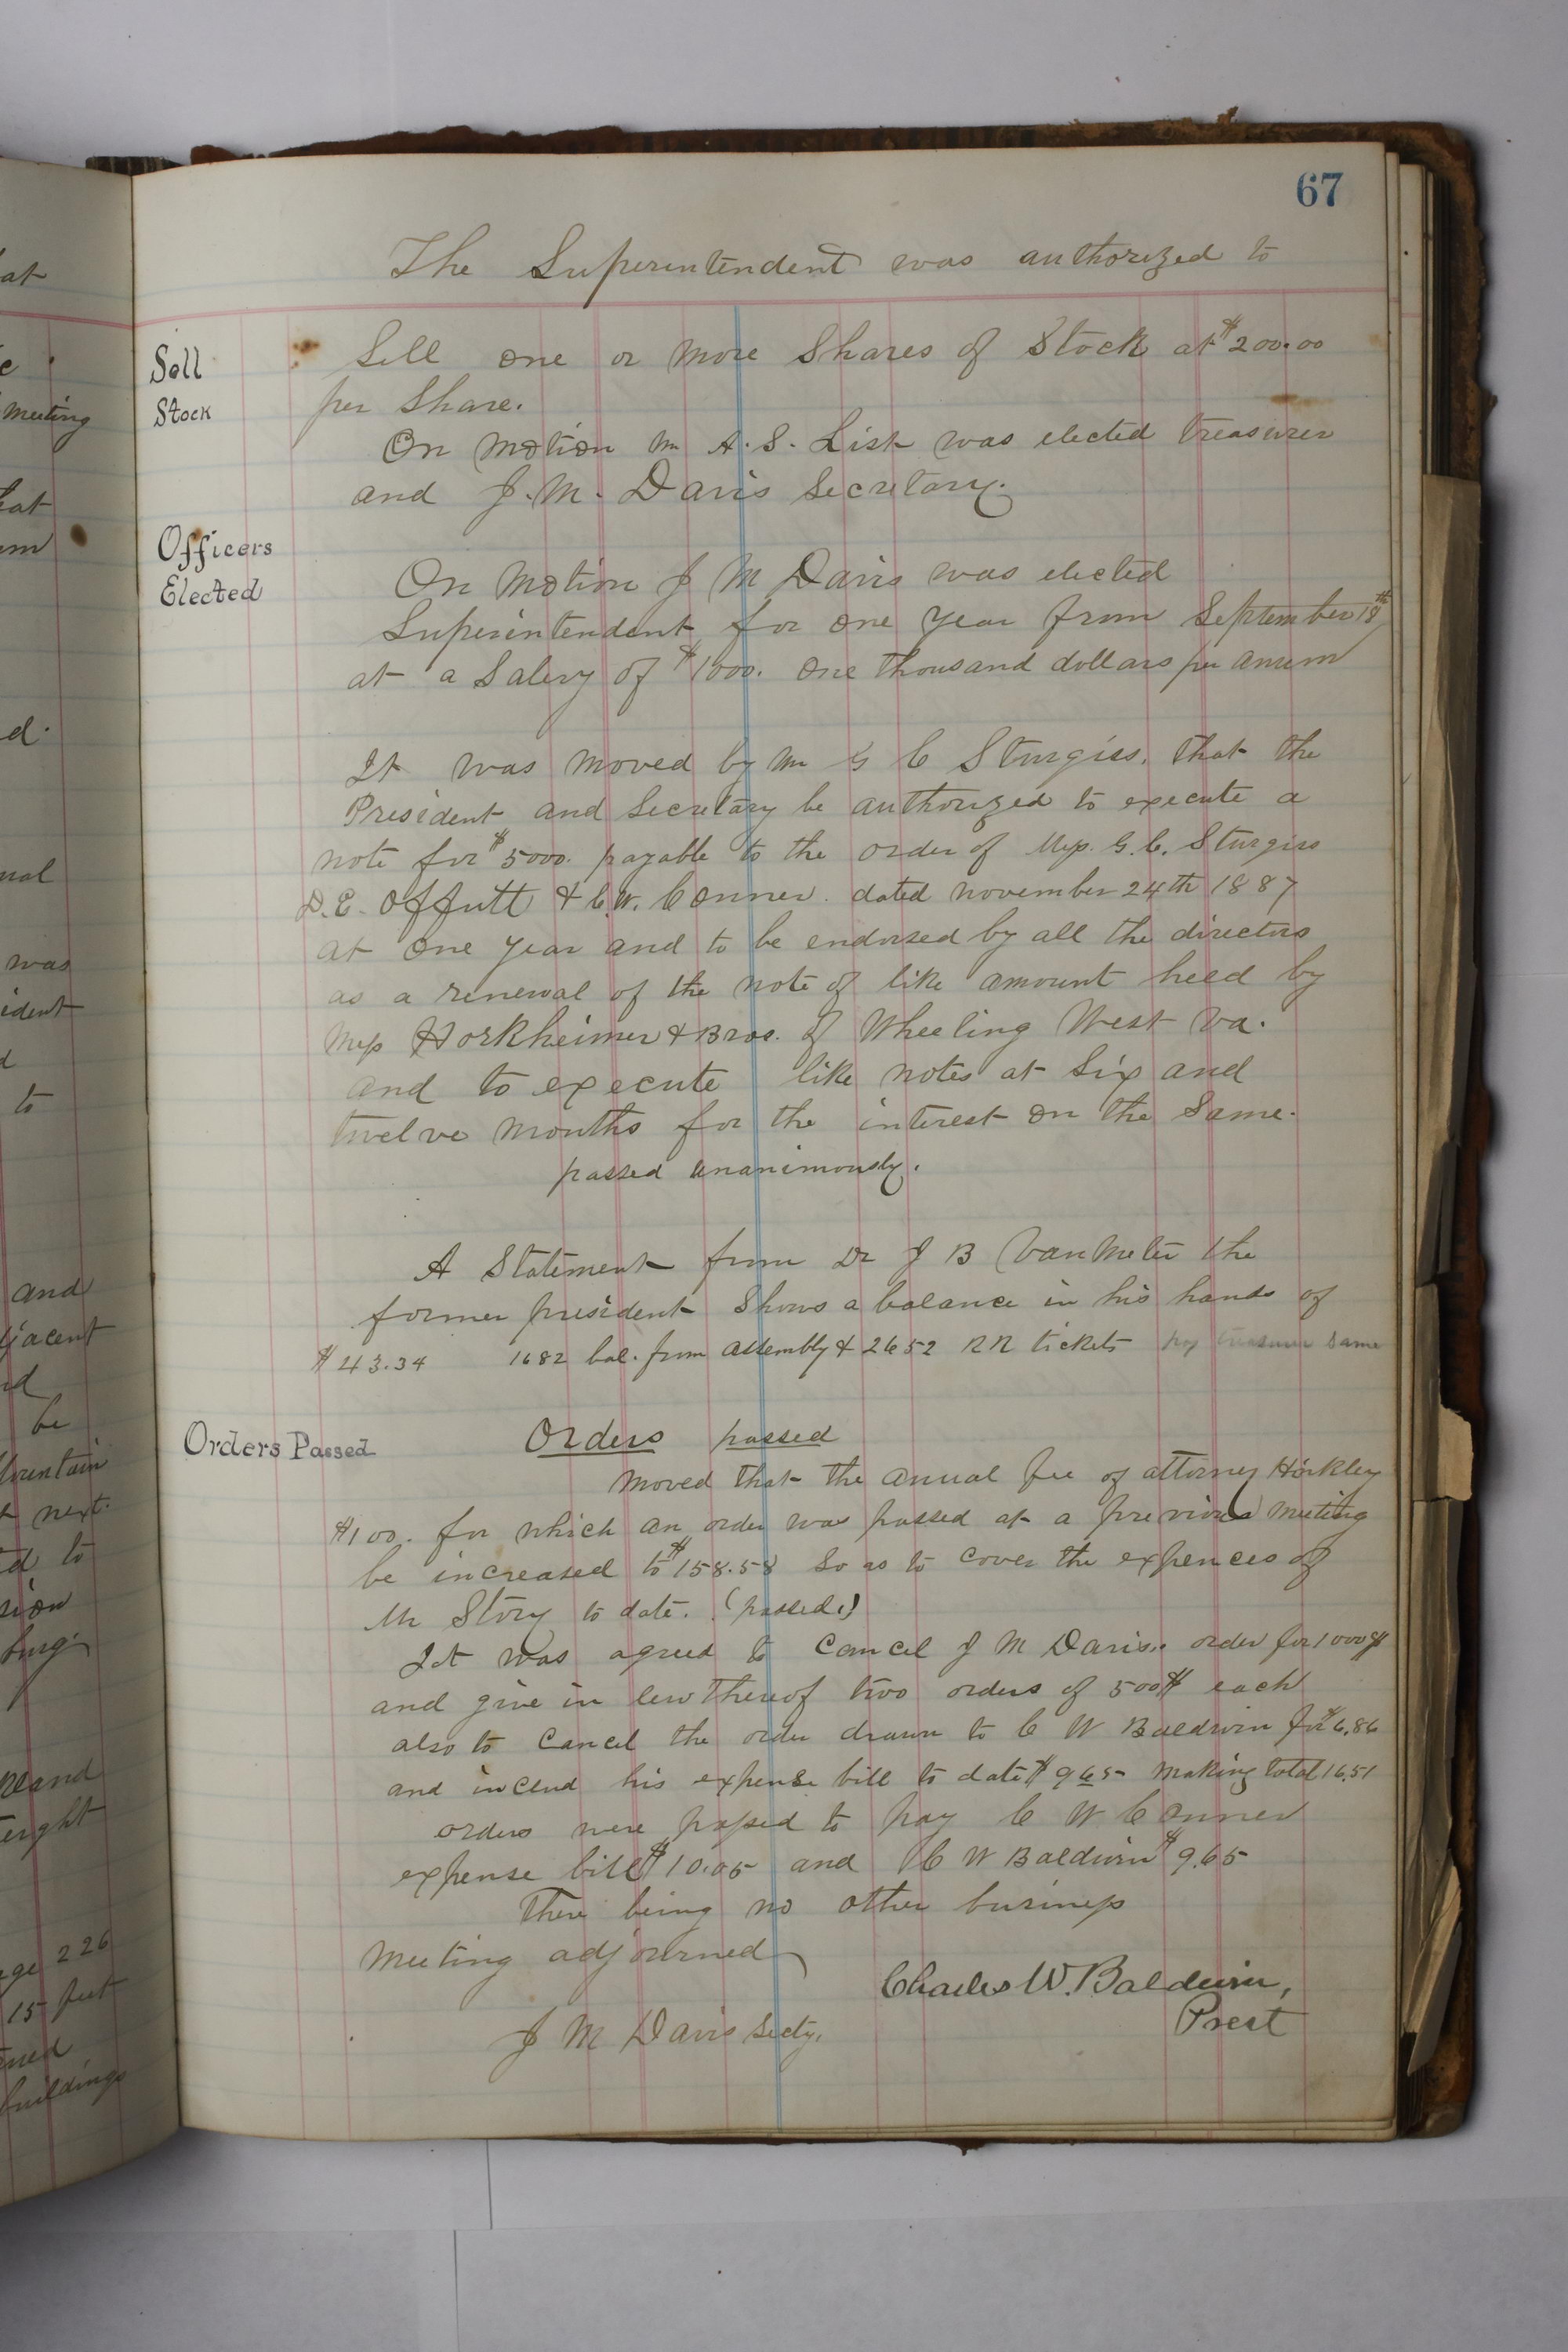 67
The Superintendent was authorized to
Sell
Stock
Sell one or more Shares of Stock at $200.00
per Share.
On motion Mr A. S. List was elected treasurer
and J. M. Davis Secretary.
Officers
Elected
On Motion J M Davis was elected
Superintendent for one year from September 18th
at a Salery of $1000. one thousand dollars per anum
It was moved by Mr G C Sturgiss, that the
President and Secretary be authorized to execute a
note for $5000. payable to the order of Mess. G. C. Sturgiss
D. E. Offutt & C. W. Conner. dated november 24th 1887
at one year and to be endorsed by all the directors
as a renewal of the note of like amount held by
Mess Horkheimer & Bros. of Wheeling West Va.
and to execute like notes at Six and
twelve months for the interest on the Same.
passed unanimously.
A Statement from Dr J B VanMeter the
former president Shows a balance in his hands of
$43.34 1682 bal. from assembly & 2652 RR tickets pay treasurer Same
Orders Passed
Orders passed
Moved that the anual fee of attorney Hinkley
$100. for which an order was passed at a previous meeting
be increased to $158.58 So as to cover the expences of
Mr Story to date. (passed.)
It was agreed to Cancel J M Davis. order for 1000$
and give in lew thereof two orders of 500$ each
also to Cancel the order drawn to C W Baldwin for $6.86
and includ his expense bill to date $9.65 making total 16.51
orders were passed to pay C W Conner
expense bill $10.05 and C W Baldwin $9.65
There being no other business
Meeting adjourned
Charles W. Baldwin,
Prest
J M Davis Secty.
at
meeting
hat
d.
was
ident
to
and
jacent
be
ountain
next.
d to
burg.
eight
ge 226
15 feet
buildings